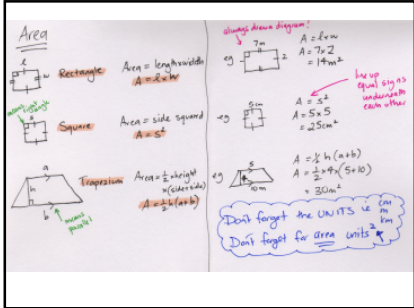 Area
l
w
Rectangle
Area = length x width
A = l x w
means right angle
s
Square
Area = side squared
A = s²
a
h
b
Trapezium
means parallel
Area = ½ x height
x (side + side)
A = ½ h (a+b)
always draw a diagram!
eg
7m
2
A = l x w
A = 7 x 2
= 14m²
line up equal signs underneath each other
eg
5cm
A = s²
A = 5 x 5
= 25cm²
eg
5
10m
A = ½ h (a+b)
A = ½ x 4 x (5+10)
= 30m²
Don't forget the UNITS ie cm
m
km
Don't forget for area units²